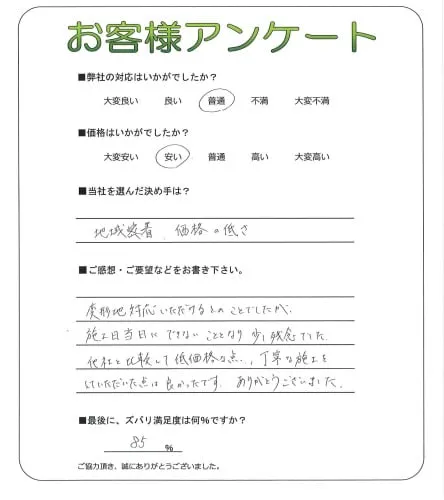 お客様アンケート
■弊社の対応はいかがでしたか？
大変良い 良い 普通 不満 大変不満
■価格はいかがでしたか？
大変安い 安い 普通 高い 大変高い
■当社を選んだ決め手は？
地域密着、価格の低さ
■ご感想・ご要望などをお書き下さい。
変形地対応いただけるとのことでしたが、
施工日当日にできないこととなり少し残念でした。
他社と比較して低価格な点、丁寧な施工を
していただいた点は良かったです。ありがとうございました。
■最後に、ズバリ満足度は何％ですか？
85 ％
ご協力頂き、誠にありがとうございました。